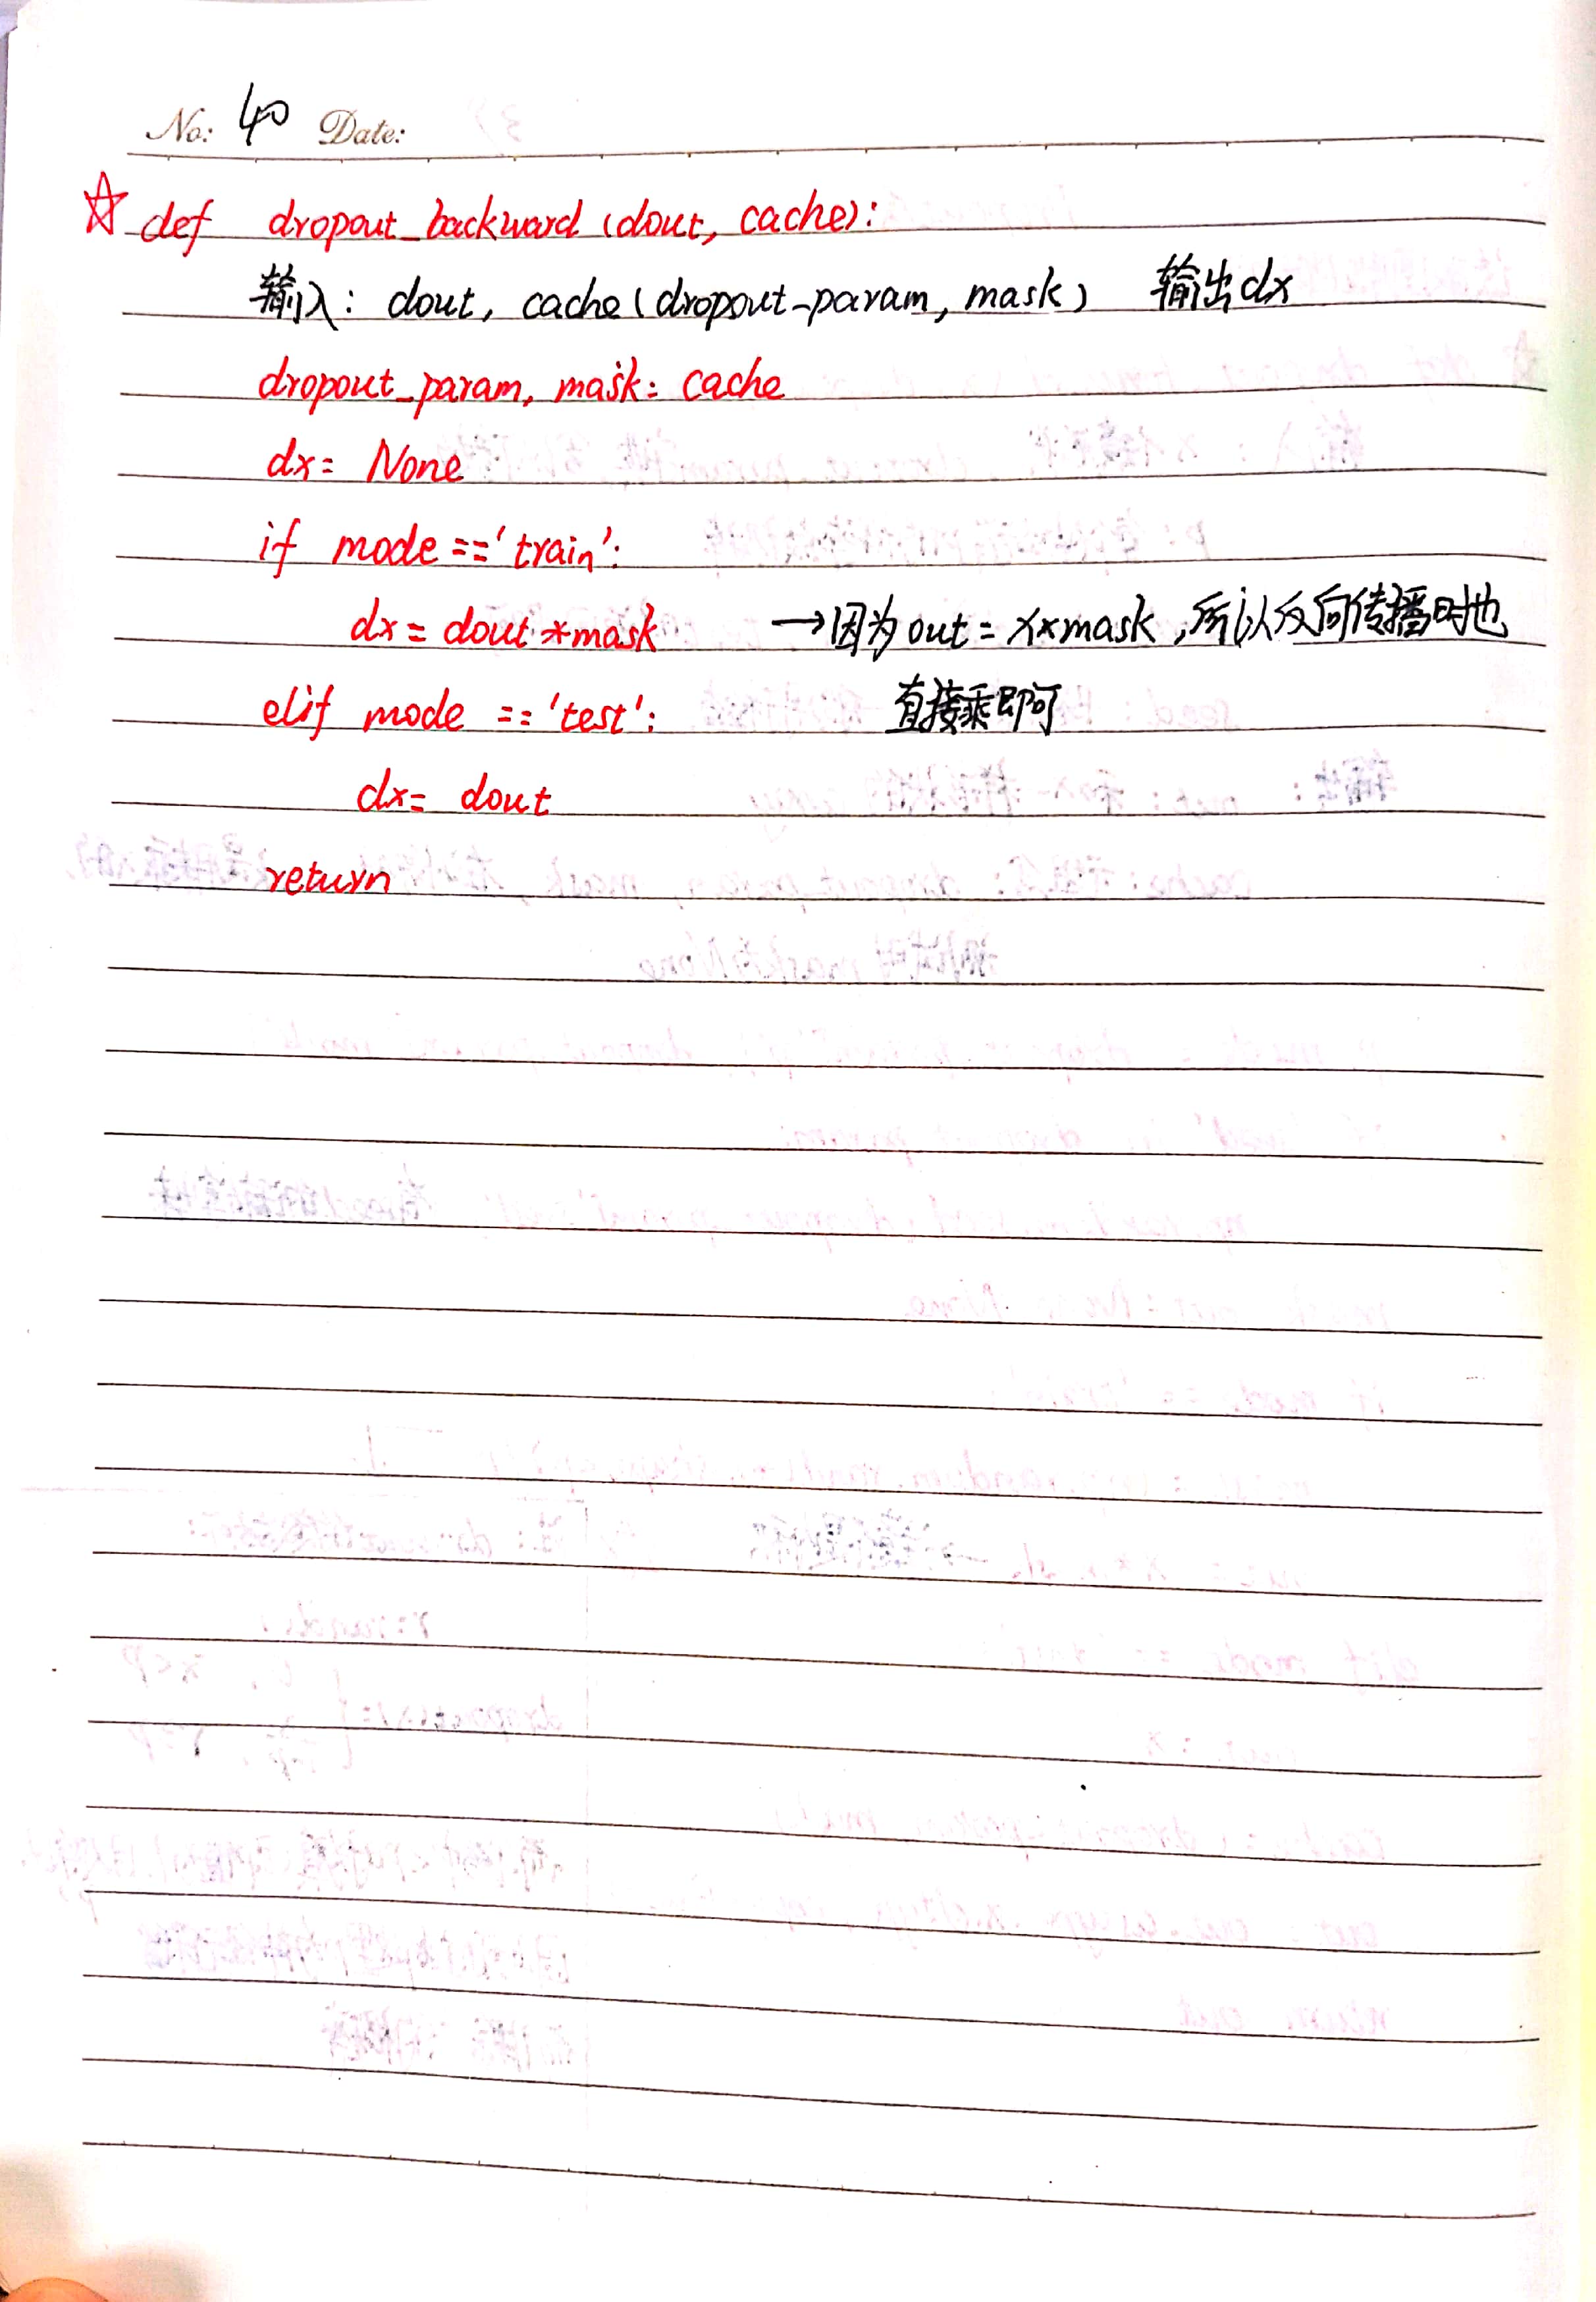 No: 40 Date:
☆ def dropout_backward (dout, cache):
输入: dout, cache (dropout-param, mask) 输出dx
dropout_param, mask = cache
dx = None
if mode == 'train':
dx = dout *mask →因为 out = x*mask ,所以反向传播时也
直接乘即可
elif mode == 'test':
dx = dout
return